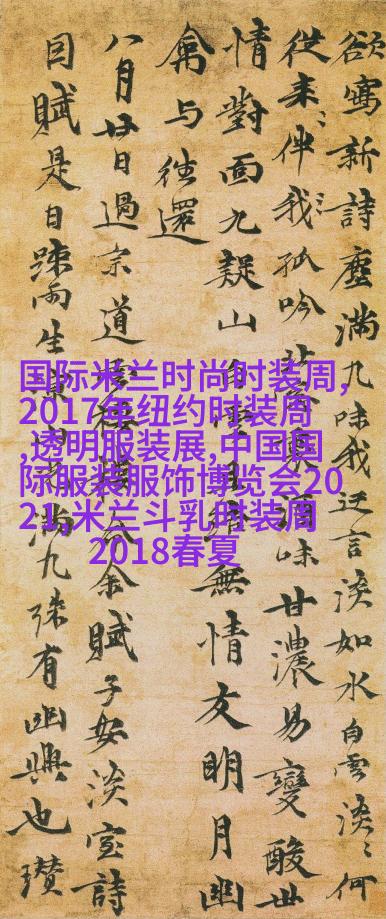 欲寫新詩塵滿九味我迂言淡如水白雲淡〻何
從来〻伴我〻孤吟味甘濃易變酸世
情對面九疑山無情友明月幽
禽与徃還
八月廿日過宗道余賦子安淡室詩
目賦是日踈雨生滿九殊有幽興也瓚
国际米兰时尚时装周,
2017年纽约时装周
,透明服装展,中国国
际服装服饰博览会20
21,米兰斗乳时装周
2018春夏